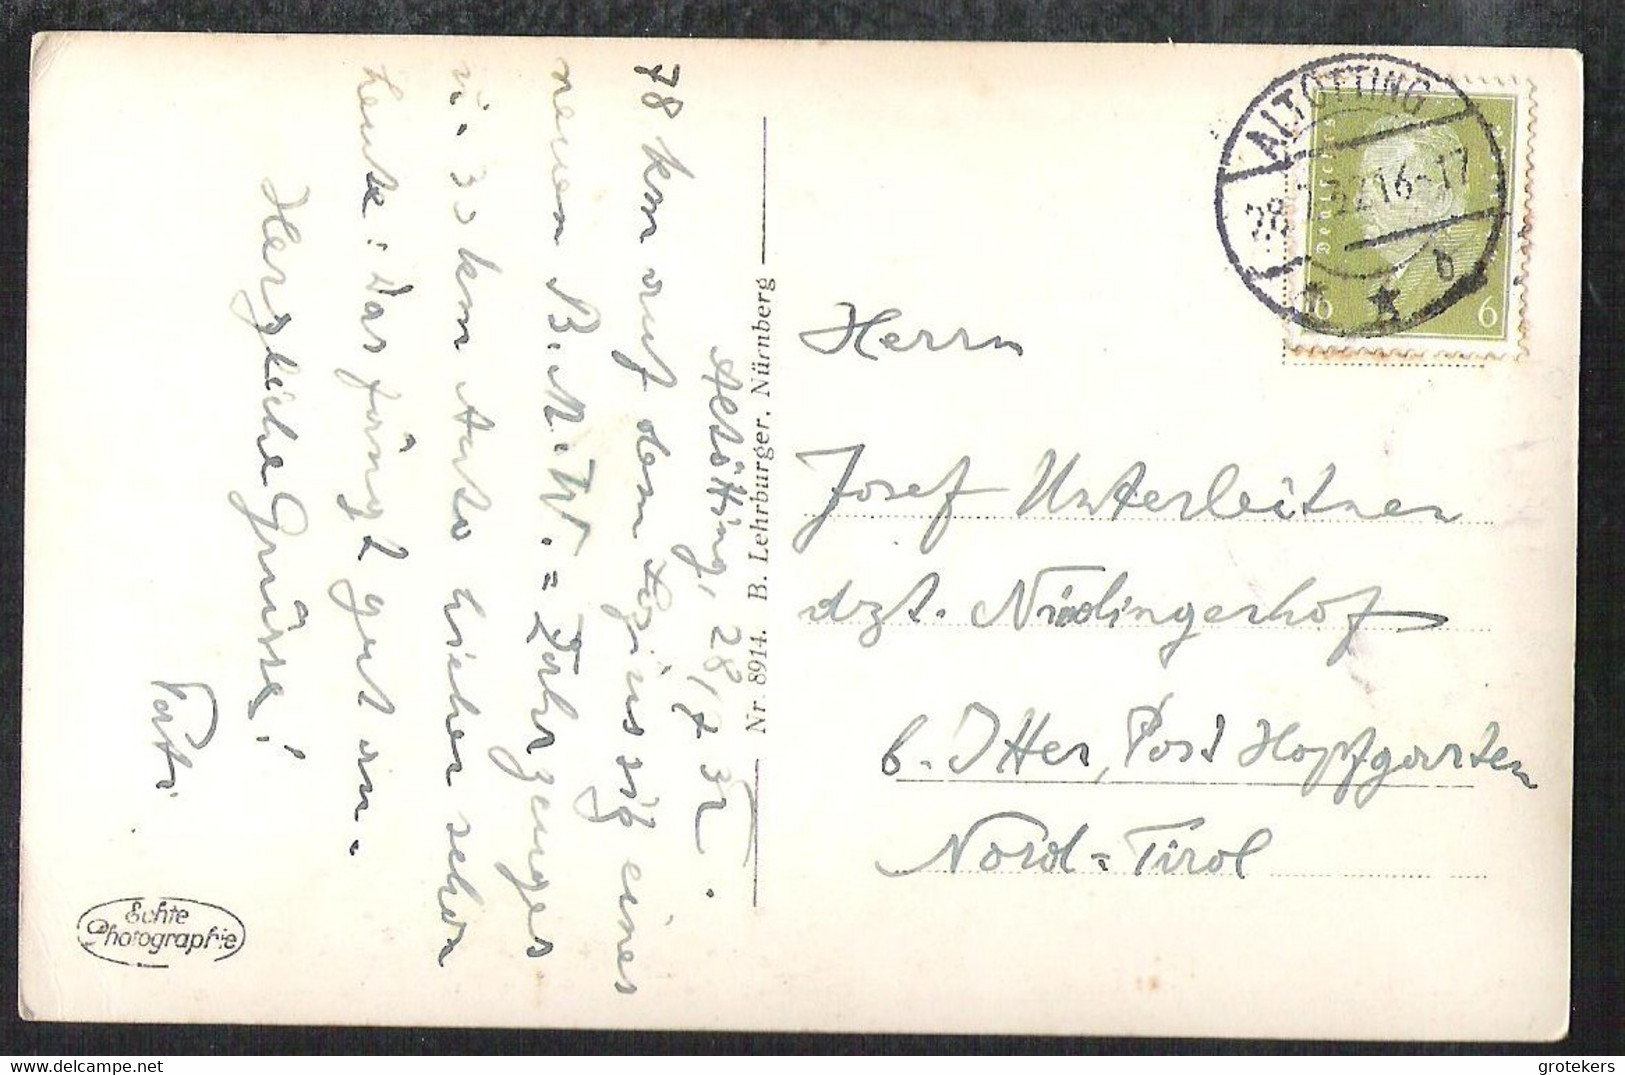 Altötting, 28./7.32.
78 km auf dem Soziussitz eines
neuen B.M.W.=Fahrzeuges
u. 33 km Auto bisher schon
heute: Das fängt gut an.
Herzliche Grüsse!
Echte
Photographie
Nr. 8914. B. Lehrburger, Nürnberg
ALTÖTTING
28. .32 16-17
b
Deutsches
6 6
Herrn
Josef Unterleitner
dzt. Nidingerhof
b. Itter, Post Hopfgarten
Nord=Tirol
grotekers